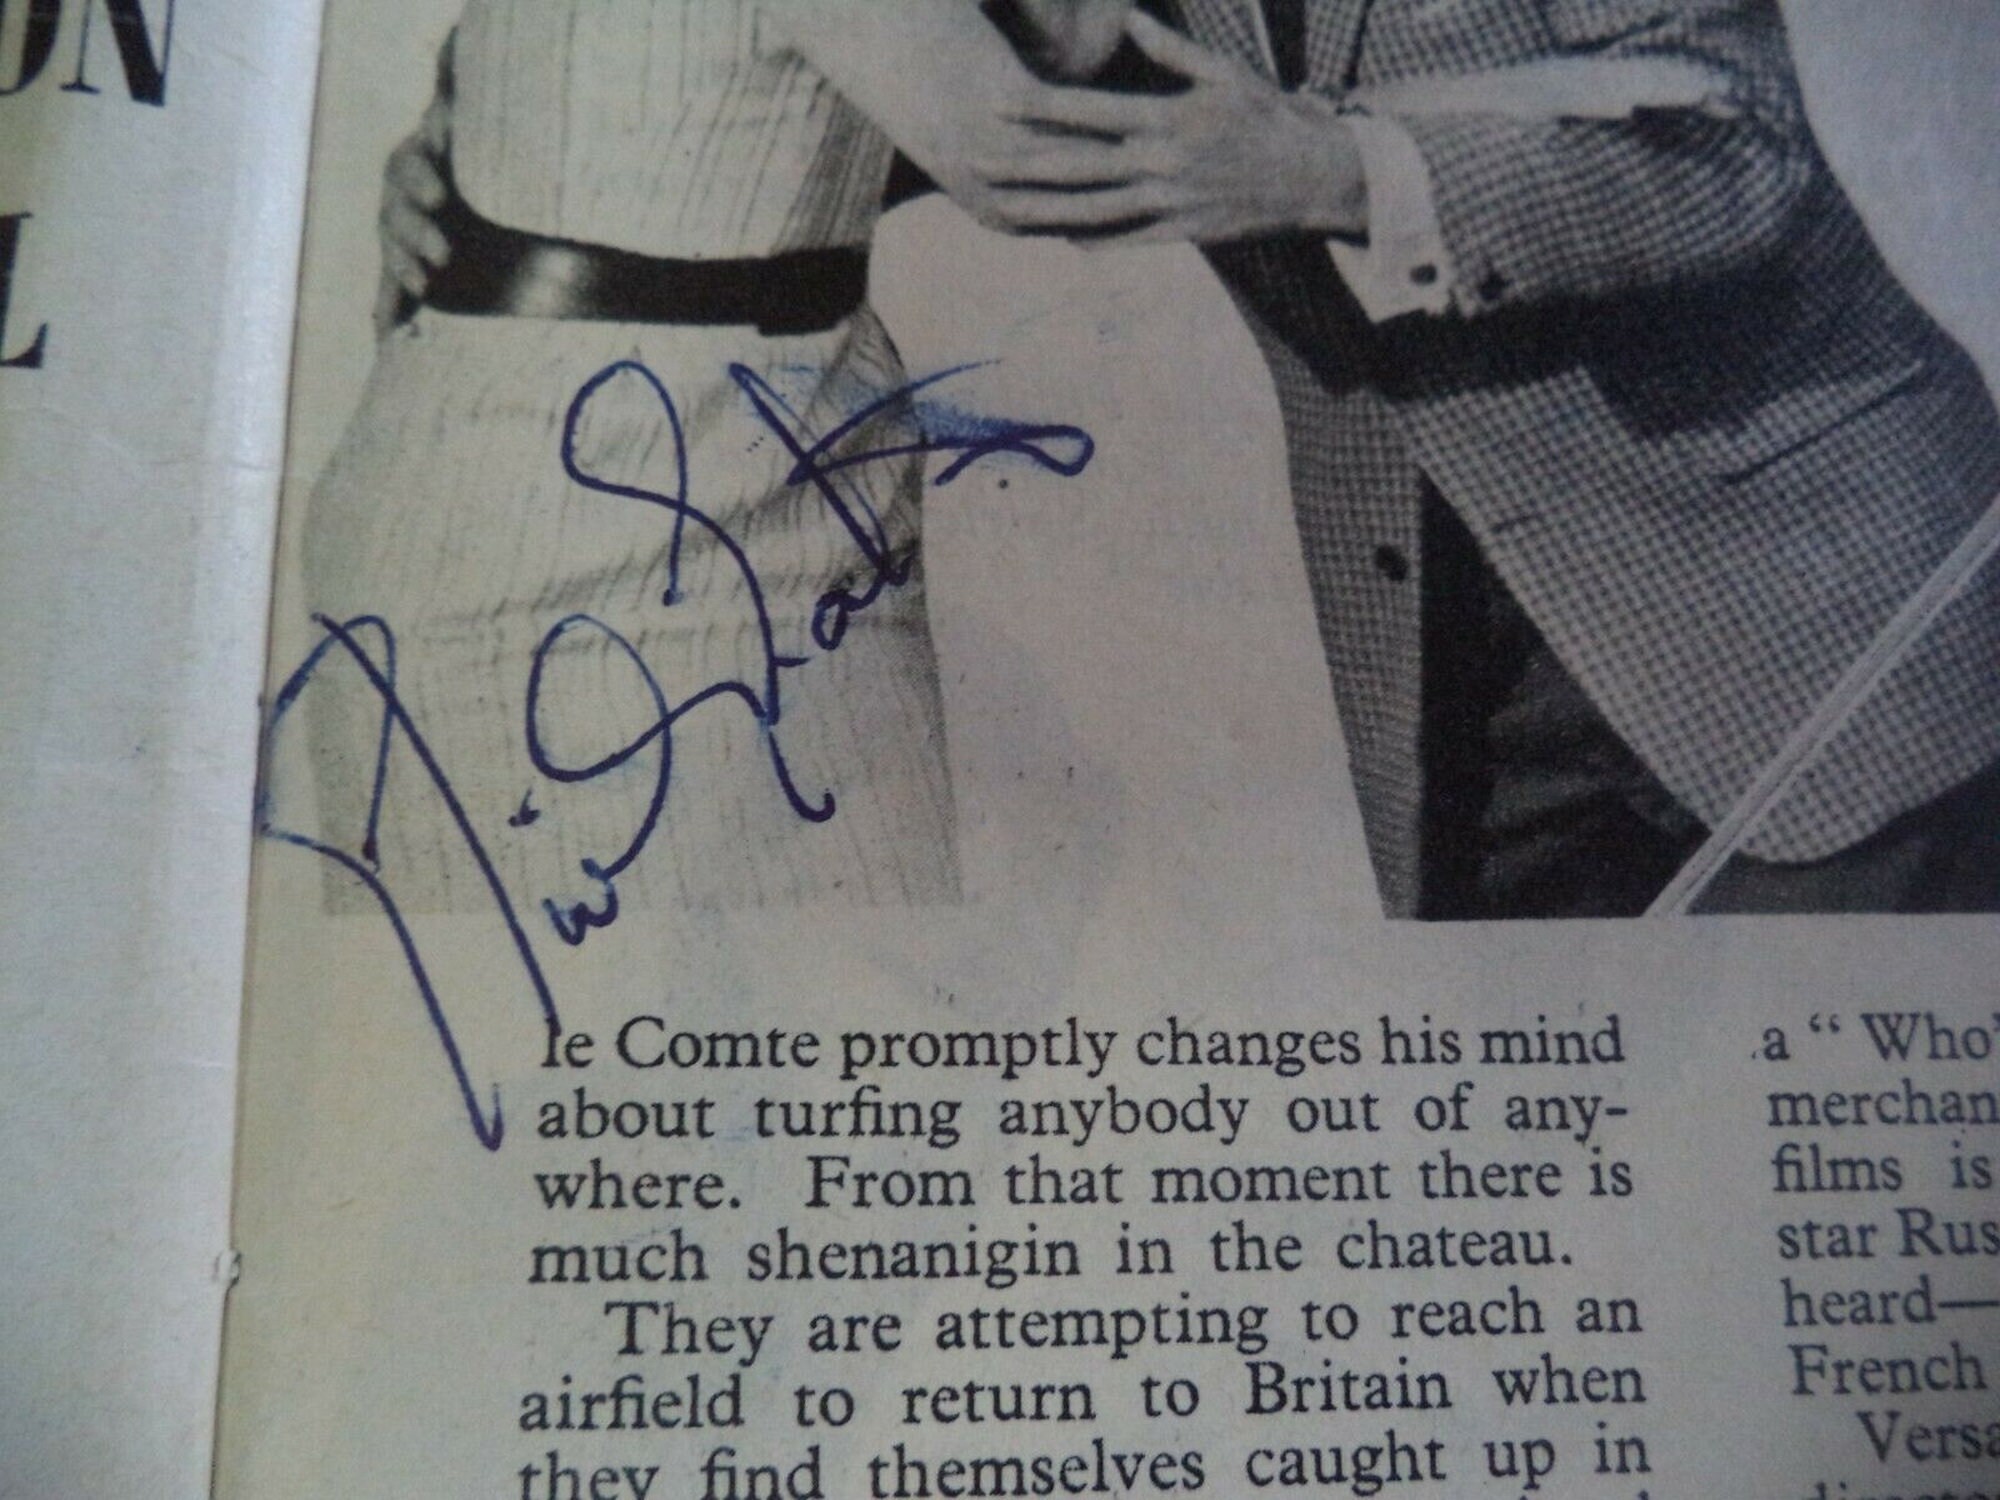 ON
L
le Comte promptly changes his mind
about turfing anybody out of any-
where. From that moment there is
much shenanigin in the chateau.
They are attempting to reach an
airfield to return to Britain when
they find themselves caught up in
a “ Who’
merchan
films is
star Rus
heard—
French
Versa